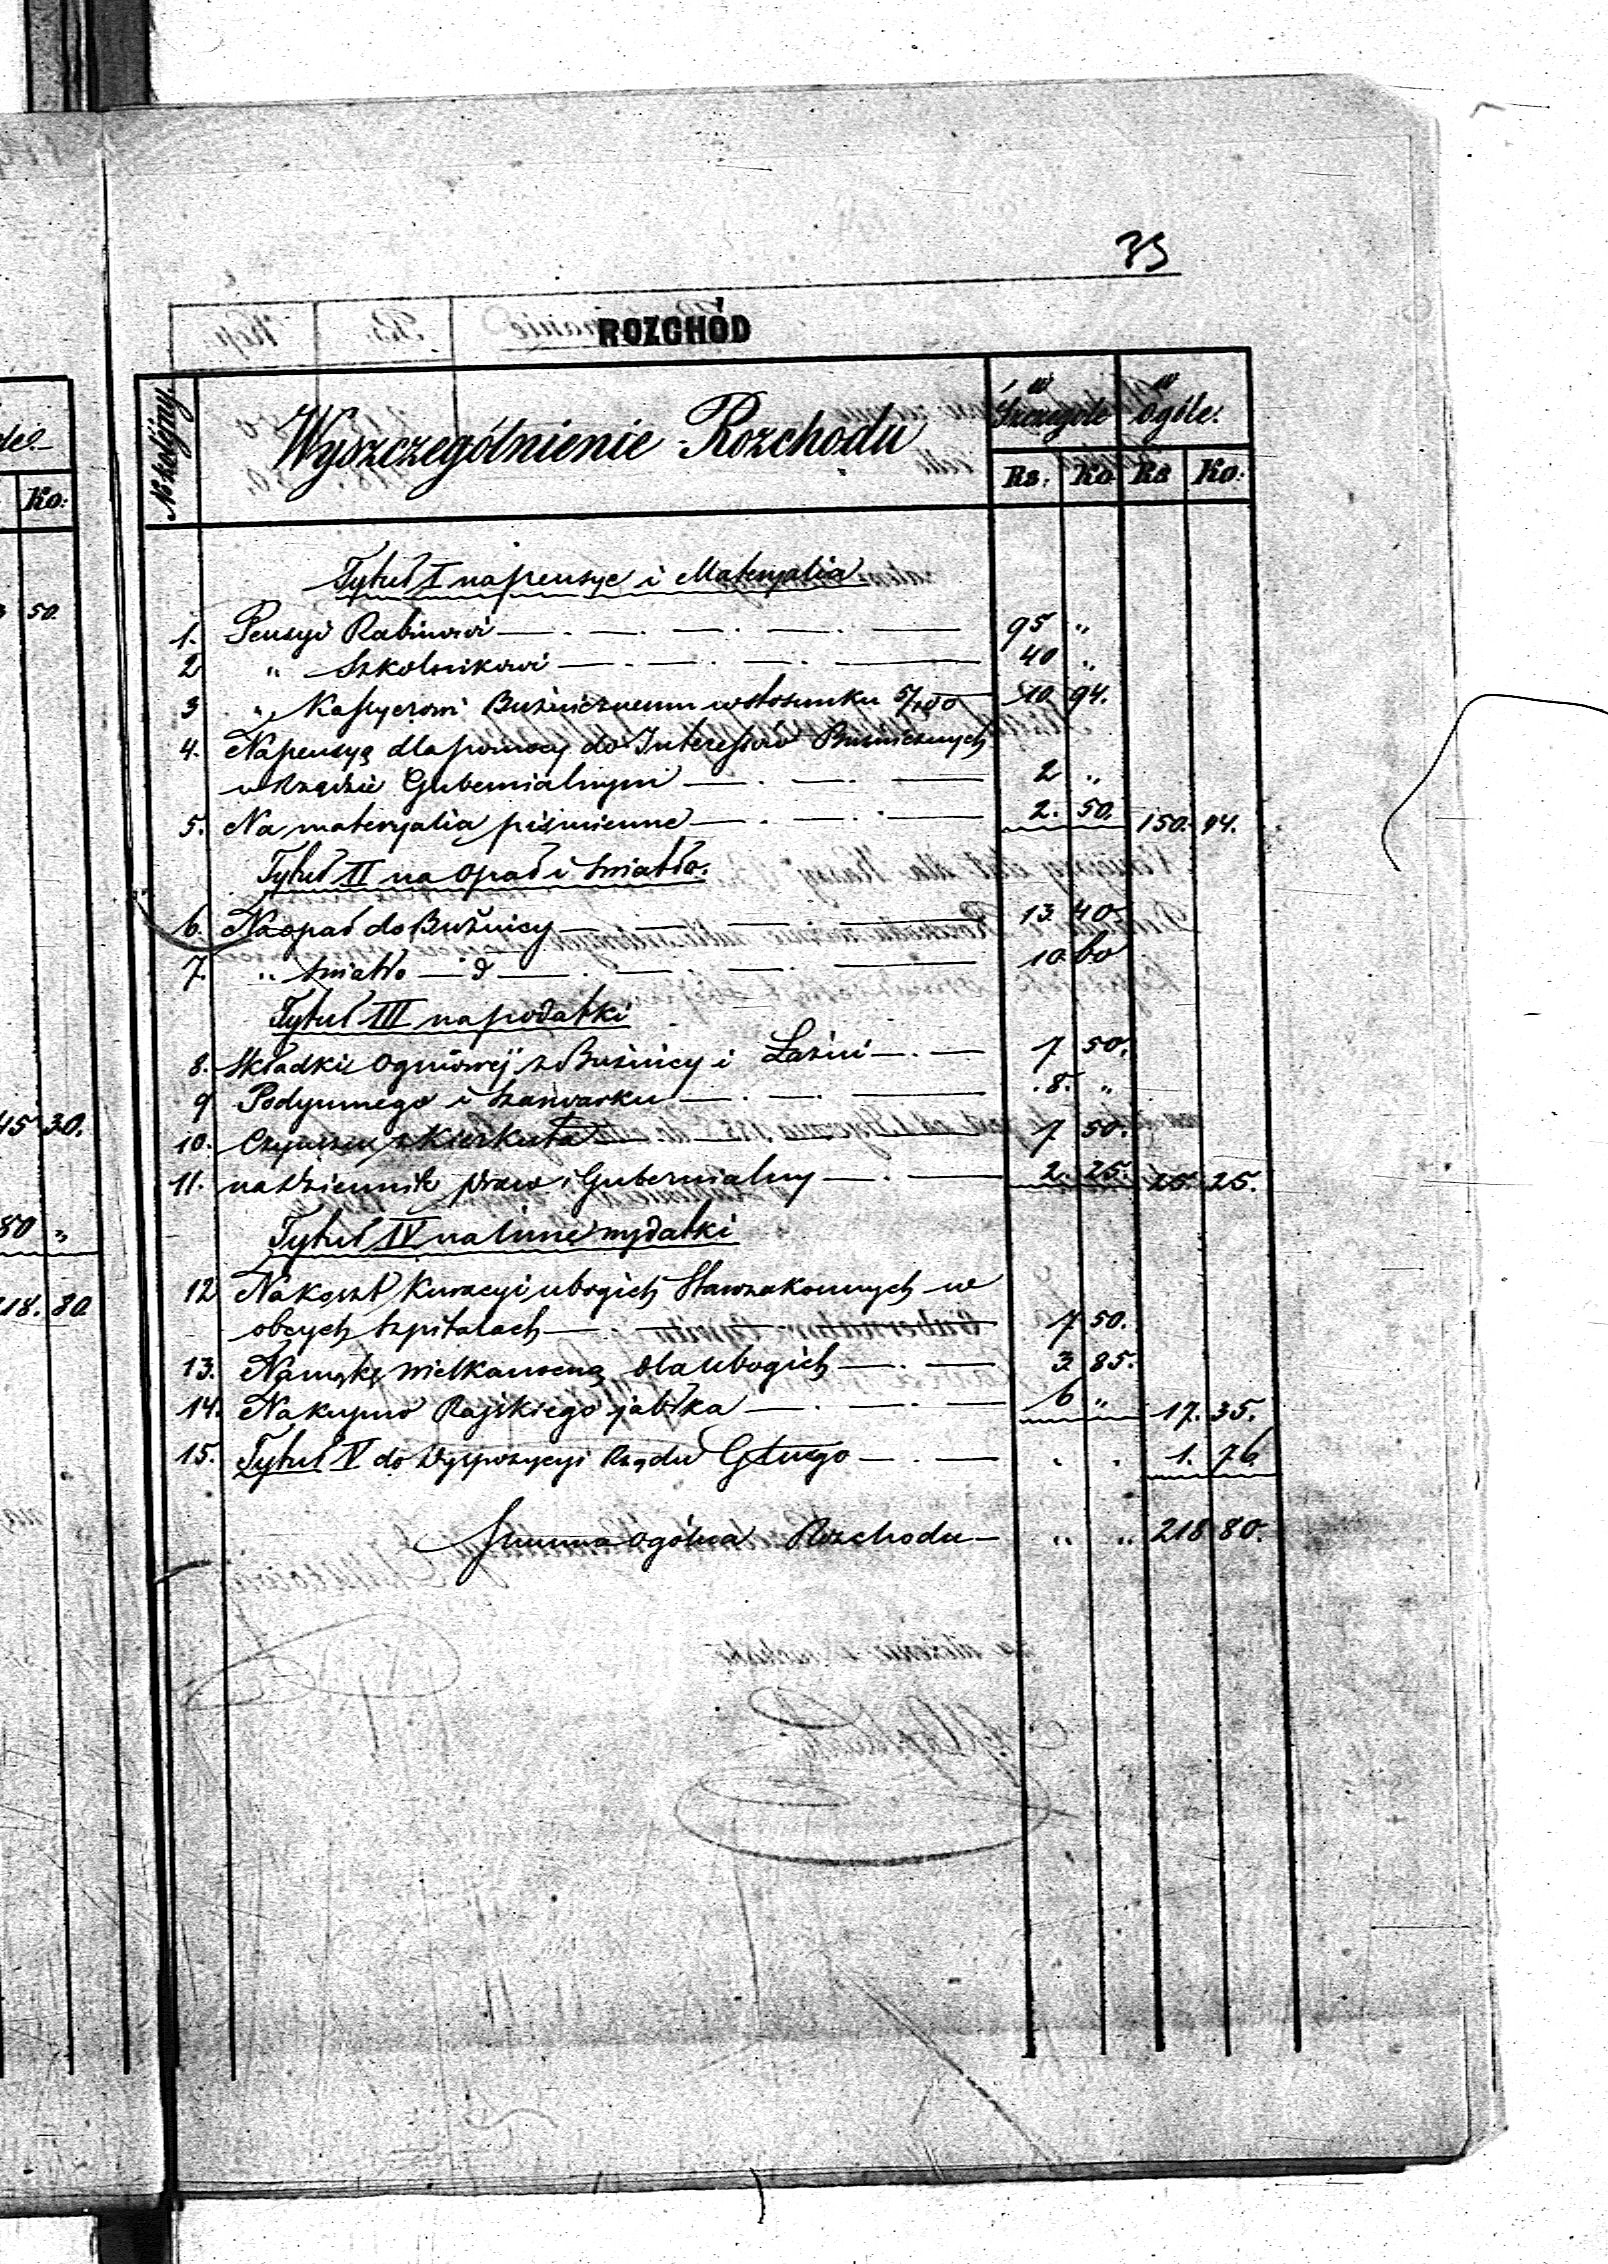 35
ROZCHÓD
No kolejny. Wyszczególnienie Rozchodu w Szczególe w ogóle.
Rs. Ko Rs Ko.
Tytuł I na pensye i Materyalia.
1. Pensyi Rabinowi 95 "
2 " Szkolnikowi 40 "
3 " Kassyerowi Bużnicznemu w stosunku 5/100 10 94.
4. Na pensyą dla pomocy do Interessów Bużnicznych
w Rządzie Gubernialnym 2 "
5. Na materyalia piśmienne 2. 50. 150. 94.
Tytuł II na opał i światło.
6. Na opał do Bużnicy 13 40.
7. " światło — d 10 60
Tytuł III na podatki
8. Składki Ogniowej z Bużnicy i Łaźni 7 50.
9 Podymnego i szarwarku 8. "
10. Czynszu z Kierkuta 7 50.
11. na dziennik praw i Gubernialny 2. 25. 25. 25.
Tytuł IV na inne wydatki
12 Na koszt Kuracyi ubogich Starozakonnych w
obcych szpitalach 7 50.
13. Na mąkę wielkanocną dla ubogich 3. 85.
14. Na kupno Rajskiego jabłka 6 " 17. 35.
15. Tytuł V do dyspozycyi Rządu Głnego . . 1. 76
Summa ogólna Rozchodu " " 218 80.
Ko:
50.
45 30.
80 "
218. 80